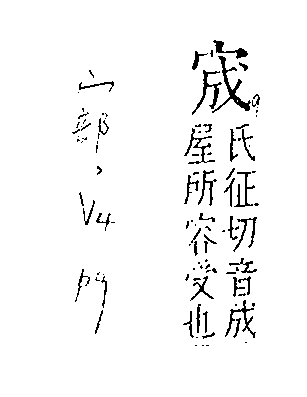 宬
氏征切音成
屋所容受也
宀部, V4
p9